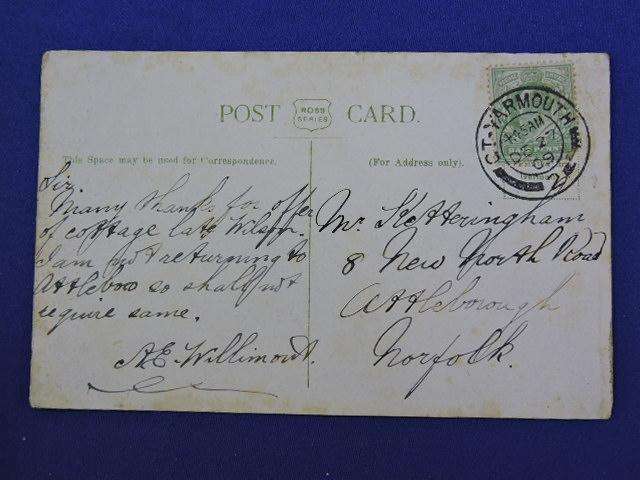 POST ROSS SERIES CARD.
This Space may be used for Correspondence.
(For Address only).
GT. YARMOUTH
09
2
Sir,
Many thanks for offer
of cottage late Wilson.
I am not returning to
Attleboro so shall not
require same.
A.E. Willimout.
Mr. Ketteringham
8 New North Road
Attleborough
Norfolk.